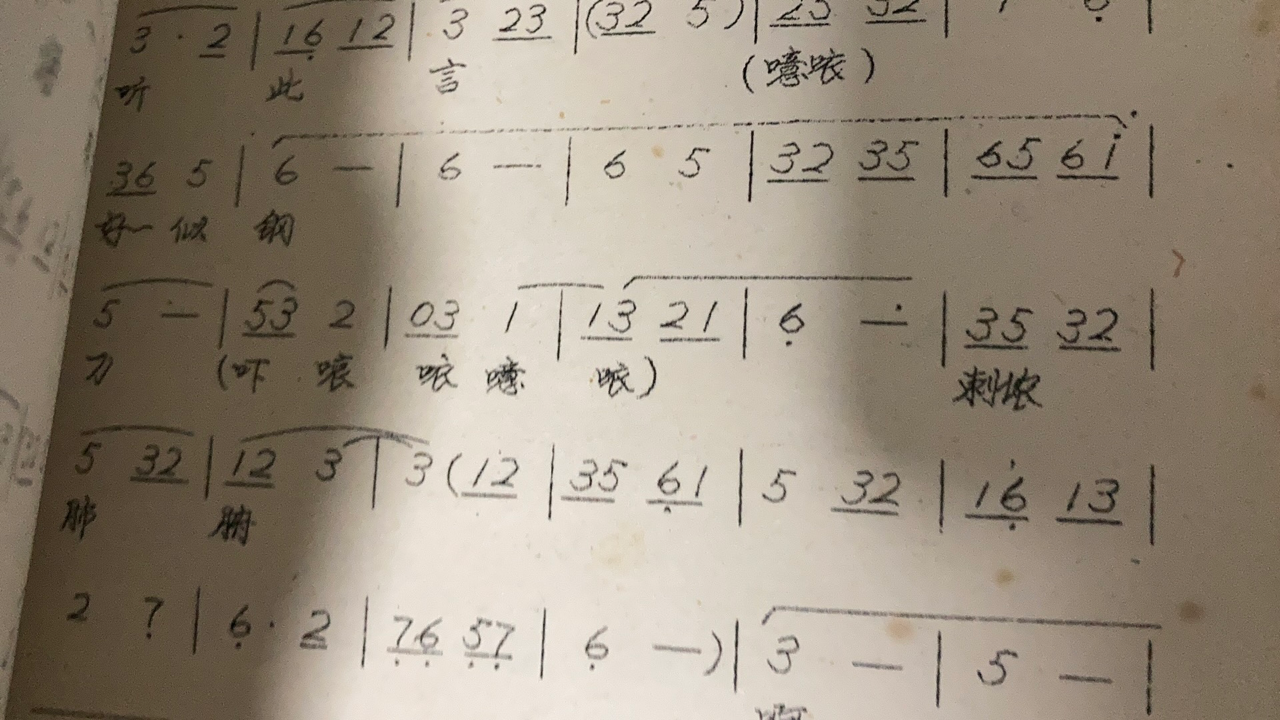 3 · 2 | 16 12 | 3 23 | (32 5) | 23 32 |
听 此 言 (噫哝)
36 5 | 6 — | 6 — | 6 5 | 32 35 | 65 61 |
好一似 钢
5 — | 53 2 | 03 1 | 13 21 | 6 — | 35 32 |
刀 (吓 哝 噫 哝) 刺侬
5 32 | 12 3 | 3 (12 | 35 61 | 5 32 | 16 13 |
肺 腑
2 7 | 6 · 2 | 76 57 | 6 —) | 3 — | 5 — |